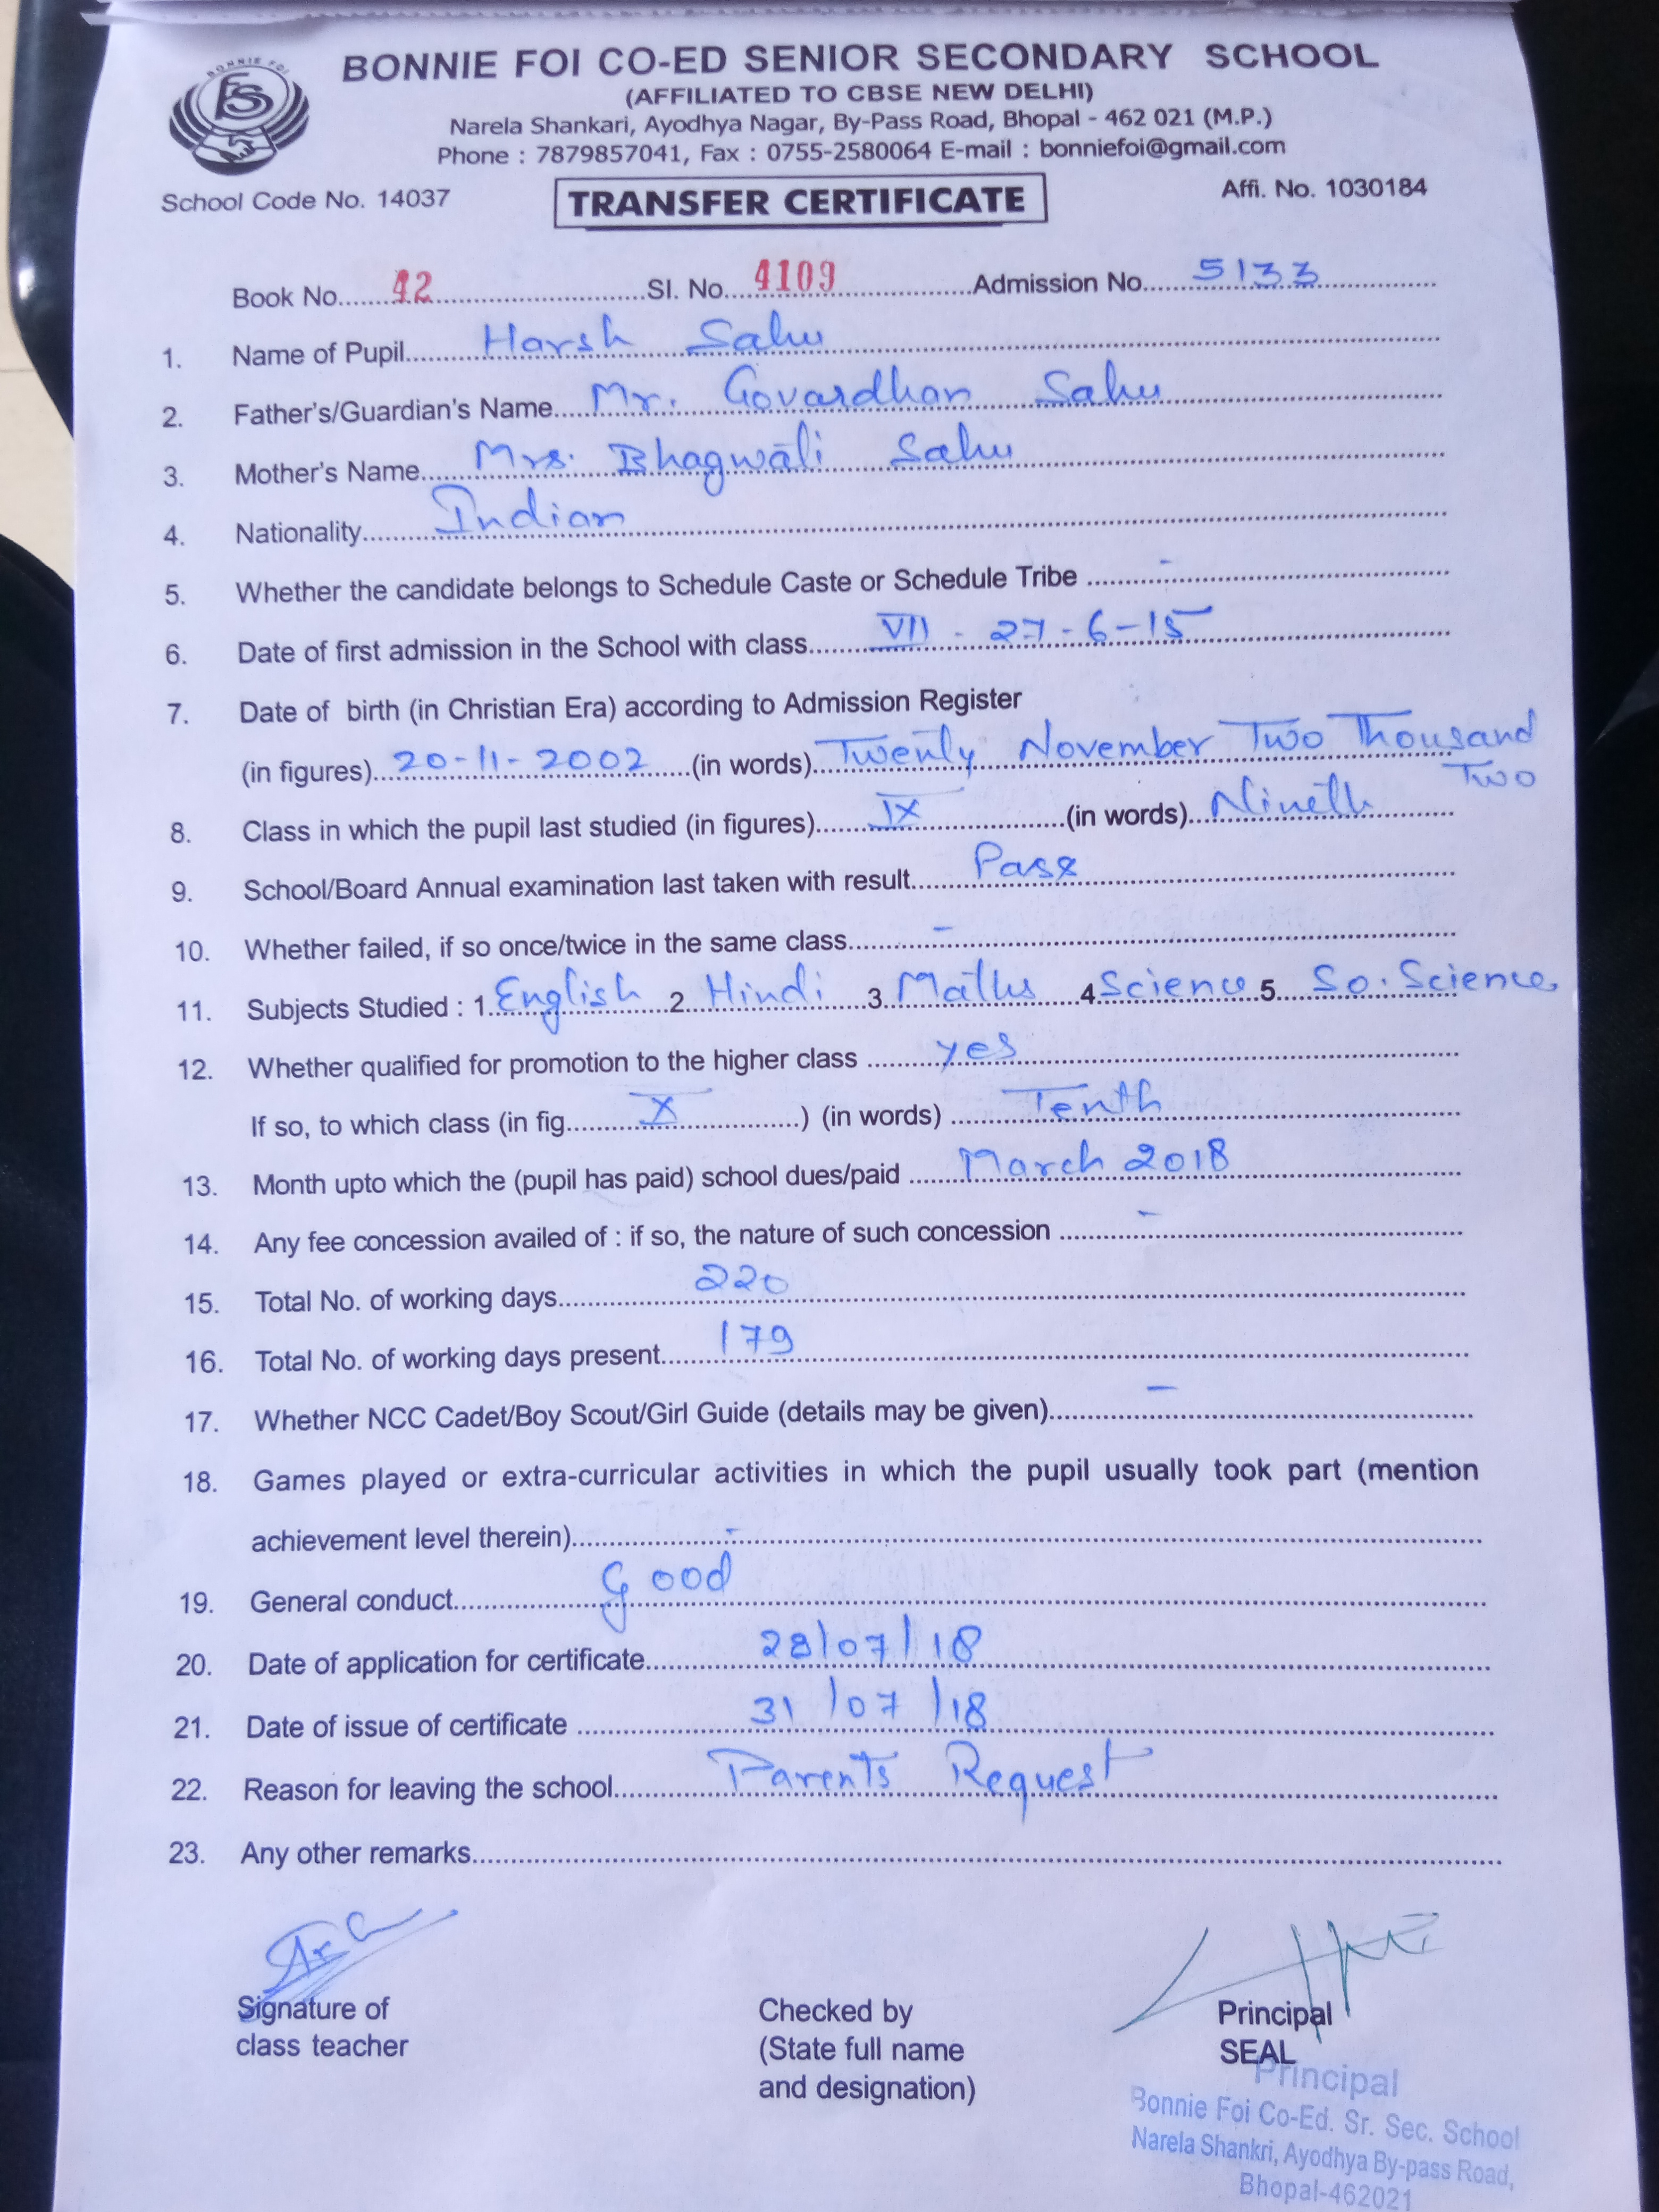 BONNIE FOI
BONNIE FOI CO-ED SENIOR SECONDARY SCHOOL
(AFFILIATED TO CBSE NEW DELHI)
Narela Shankari, Ayodhya Nagar, By-Pass Road, Bhopal - 462 021 (M.P.)
Phone : 7879857041, Fax : 0755-2580064 E-mail : bonniefoi@gmail.com
School Code No. 14037 TRANSFER CERTIFICATE Affi. No. 1030184
Book No. 42 Sl. No. 4109 Admission No. 5133
1. Name of Pupil Harsh Sahu
2. Father's/Guardian's Name Mr. Govardhan Sahu
3. Mother's Name Mrs. Bhagwati Sahu
4. Nationality Indian
5. Whether the candidate belongs to Schedule Caste or Schedule Tribe -
6. Date of first admission in the School with class VII - 27-6-15
7. Date of birth (in Christian Era) according to Admission Register
(in figures) 20-11-2002 (in words) Twenty November Two Thousand
Two
8. Class in which the pupil last studied (in figures) IX (in words) Nineth
9. School/Board Annual examination last taken with result Pass
10. Whether failed, if so once/twice in the same class -
11. Subjects Studied : 1. English 2. Hindi 3. Maths 4 Science 5. So. Science
12. Whether qualified for promotion to the higher class yes
If so, to which class (in fig. X ) (in words) Tenth
13. Month upto which the (pupil has paid) school dues/paid March 2018
14. Any fee concession availed of : if so, the nature of such concession -
15. Total No. of working days 220
16. Total No. of working days present 179
17. Whether NCC Cadet/Boy Scout/Girl Guide (details may be given) -
18. Games played or extra-curricular activities in which the pupil usually took part (mention
achievement level therein) -
19. General conduct Good
20. Date of application for certificate 28/07/18
21. Date of issue of certificate 31/07/18
22. Reason for leaving the school Parents Request
23. Any other remarks
Signature of
class teacher
Checked by
(State full name
and designation)
Principal
SEAL
Principal
Bonnie Foi Co-Ed. Sr. Sec. School
Narela Shankri, Ayodhya By-pass Road,
Bhopal-462021